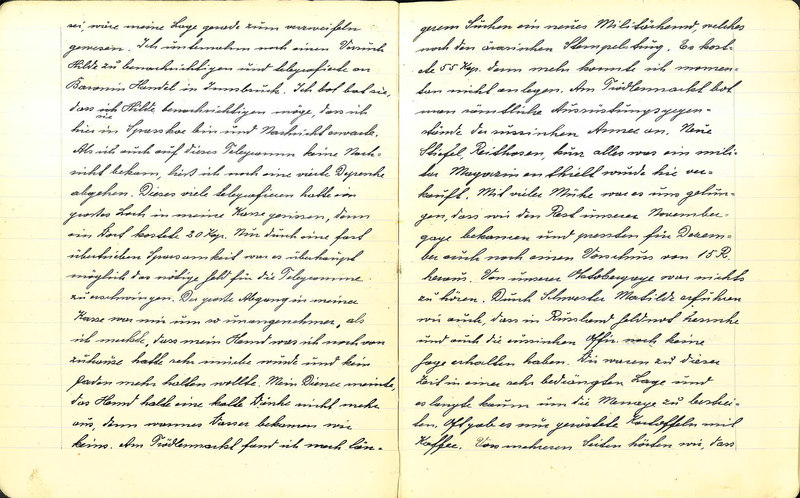 sei, wäre meine Lage gerade zum verzweifeln
gewesen. Ich unternahm noch einen Versuch
Hilde zu benachrichtigen und telegrafierte an
Baronin Handel in Innsbruck. Ich bat sie,
dass sie Hilde benachrichtigen möge, dass ich
hier in Spasskoe bin und Nachricht erwarte.
Als ich auch auf dieses Telegramm keine Nach-
richt bekam, ließ ich noch eine vierte Depesche
abgehen. Dieses viele telegrafieren hatte ein
grosses Loch in meine Kasse gerissen, denn
ein Wort kostete 20 Kop. Nur durch eine fast
übertrieben Sparsamkeit war es überhaupt
möglich das nötige Geld für die Telegramme
zu erschwingen. Der grosse Abgang in meiner
Kasse war mir um so unangenehmer, als
ich merkte, dass mein Hemd was ich noch von
zuhause hatte sehr mürbe wurde und kein
Faden mehr halten wollte. Mein Diener meinte,
das Hemd halte eine kalte Wäsche nicht mehr
aus, denn warmes Wasser bekamen wir
keins. Am Trödlermarkt fand ich nach län-
gerem Suchen ein neues Militärhemd, welches
noch den ärarischen Stempel trug. Es kost-
ete 55 Kop. denn mehr konnte ich momen-
tan nicht anlegen. Am Trödlermarkt bot
man sämtliche Ausrüstungsgegen-
stände der russischen Armee an. Neue
Stiefel, Reithosen, kurz alles was ein mili-
tär Magazin enthielt wurde hie ver-
kauft. Mit vieler Mühe war es uns gelun-
gen, dass wir den Rest unserer November-
gage bekamen und pressten für Dezem-
ber auch noch einen Vorschuss von 15 R.
heraus. Von unserer Oktobergage war nichts
zu hören. Durch Schwester Matilde erfuhren
wir auch, dass in Russland Geldnot herrsche
und auch die russischen Offiz. noch keine
Gage erhalten haben. Wir waren zu dieser
Zeit in einer sehr bedrängten Lage und
es langte kaum um die Menage zu bestrei-
ten. Oft gab es nur geröstete Kartoffeln mit
Kaffee. Von mehreren Seiten hörten wir, dass